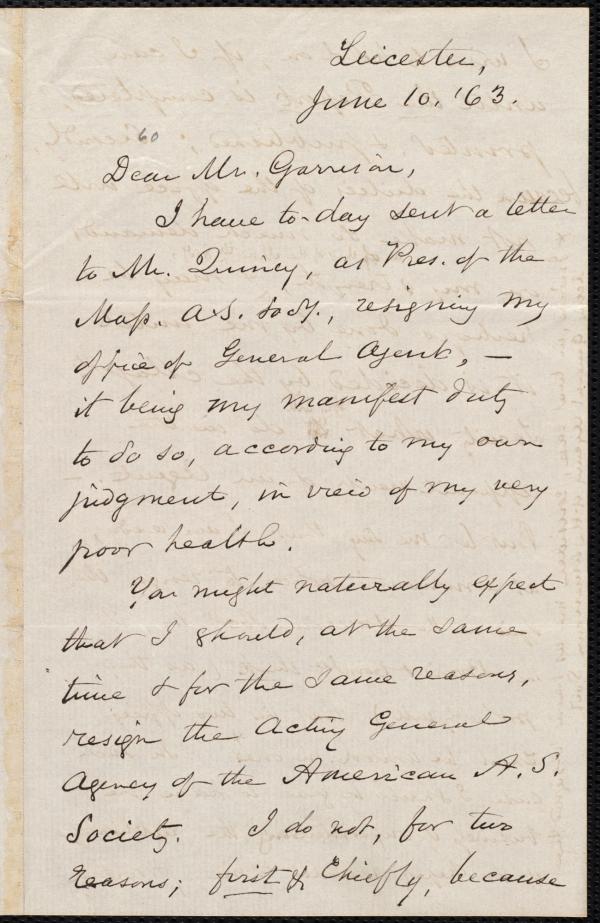 Leicester,
June 10. '63.
60
Dear Mr. Garrison,
I have to-day sent a letter
to Mr. Quincy, as Pres. of the
Mass. A.S. Socy., resigning my
office of General Agent, —
it being my manifest duty
to do so, according to my own
judgment, in view of my very
poor health.
You might naturally expect
that I should, at the same
time & for the same reasons,
resign the Acting General
Agency of the American A. S.
Society. I do not, for two
reasons; first & chiefly, because